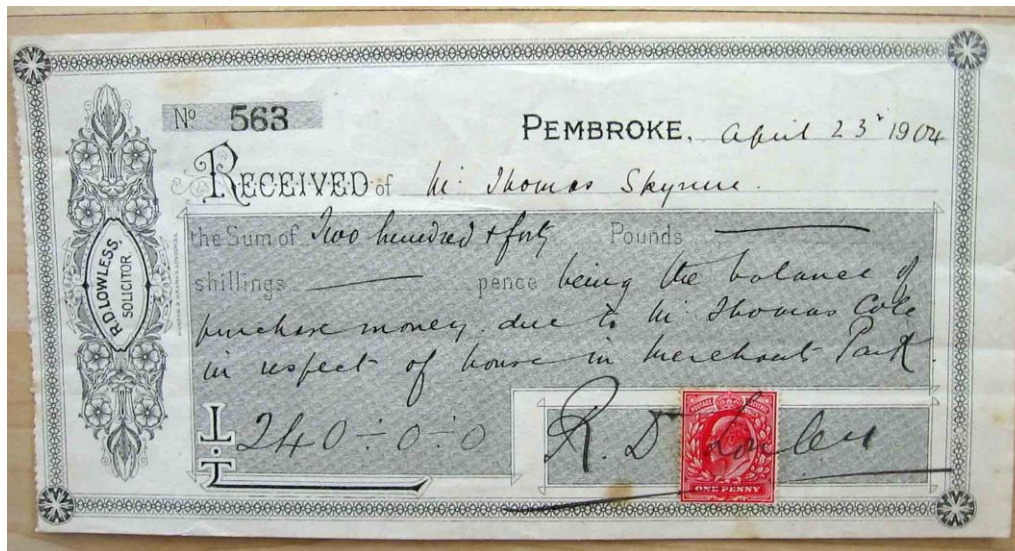 Nº 563
PEMBROKE, April 23rd 1904
RECEIVED of Mr. Thomas Skyrme.
the Sum of Two hundred & forty Pounds
shillings pence being the balance of
purchase money due to Mr. Thomas Cole
in respect of house in Merchants Park.
£ 240-0-0
R. D. Lowless
R. D. LOWLESS,
SOLICITOR
POSTAGE REVENUE
ONE PENNY